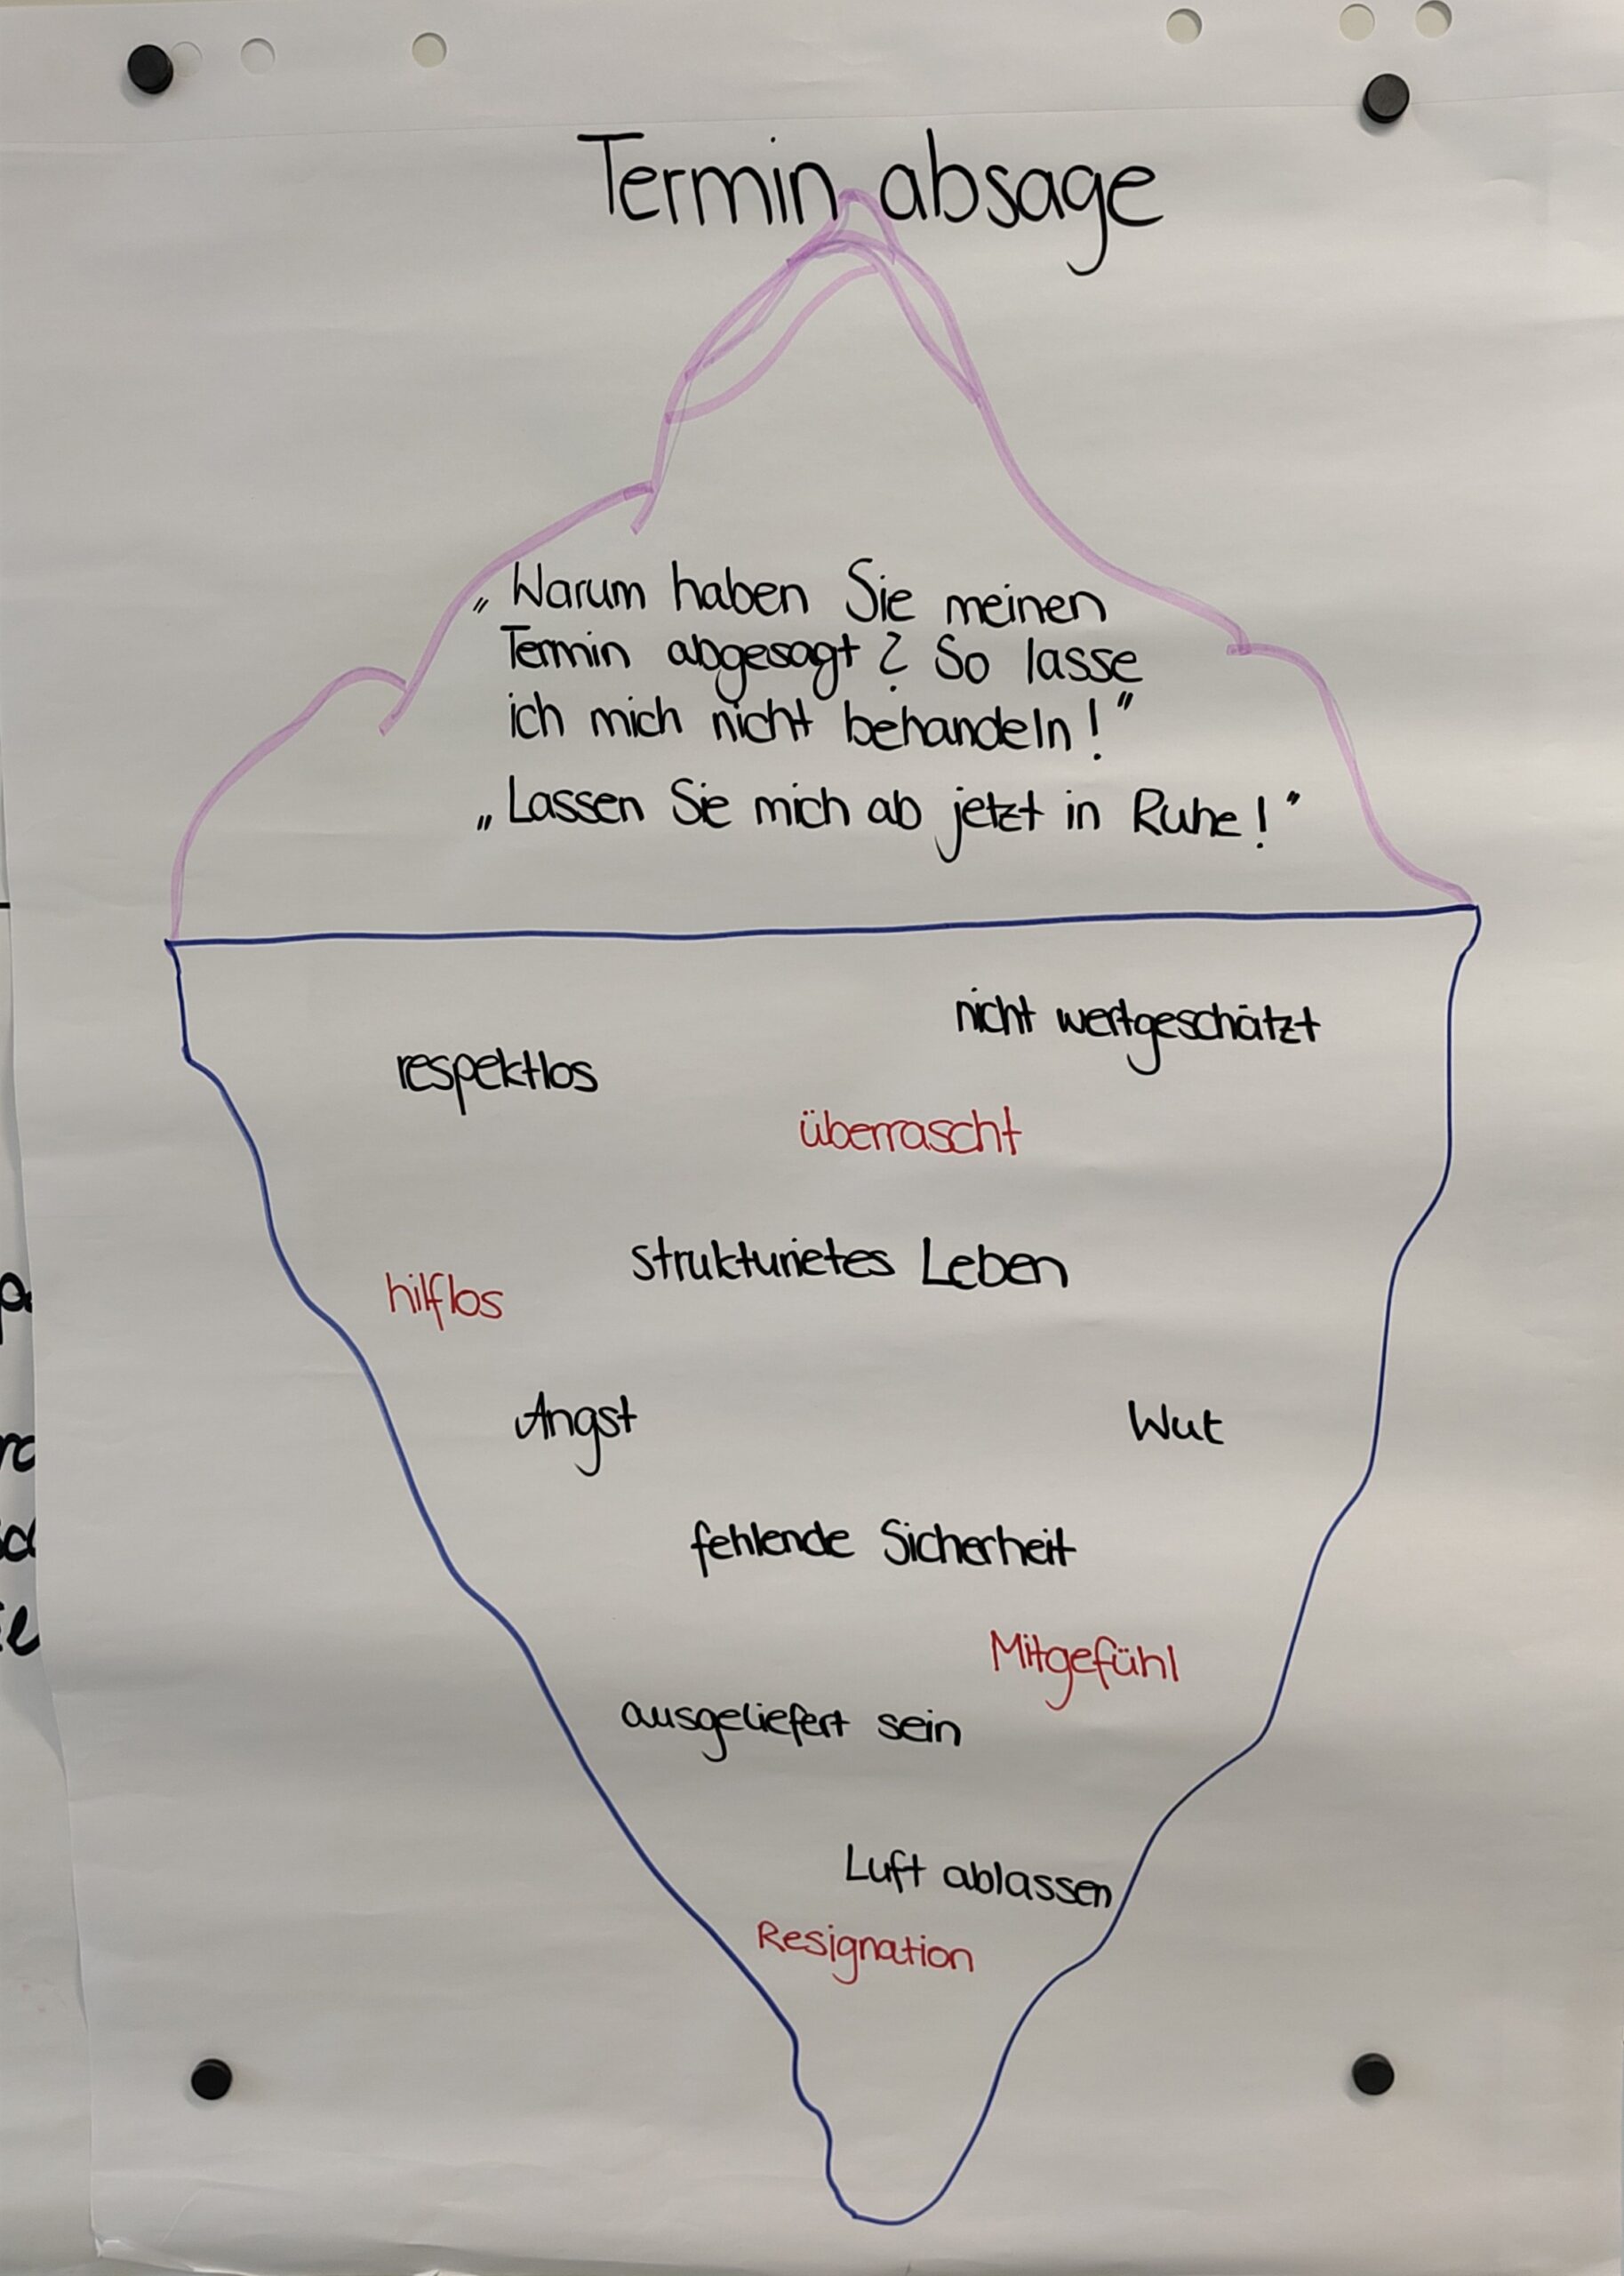 Termin absage
„Warum haben Sie meinen
Termin abgesagt? So lasse
ich mich nicht behandeln!"
„Lassen Sie mich ab jetzt in Ruhe!"
nicht wertgeschätzt
respektlos
überrascht
strukturietes Leben
hilflos
Angst
Wut
fehlende Sicherheit
Mitgefühl
ausgeliefert sein
Luft ablassen
Resignation